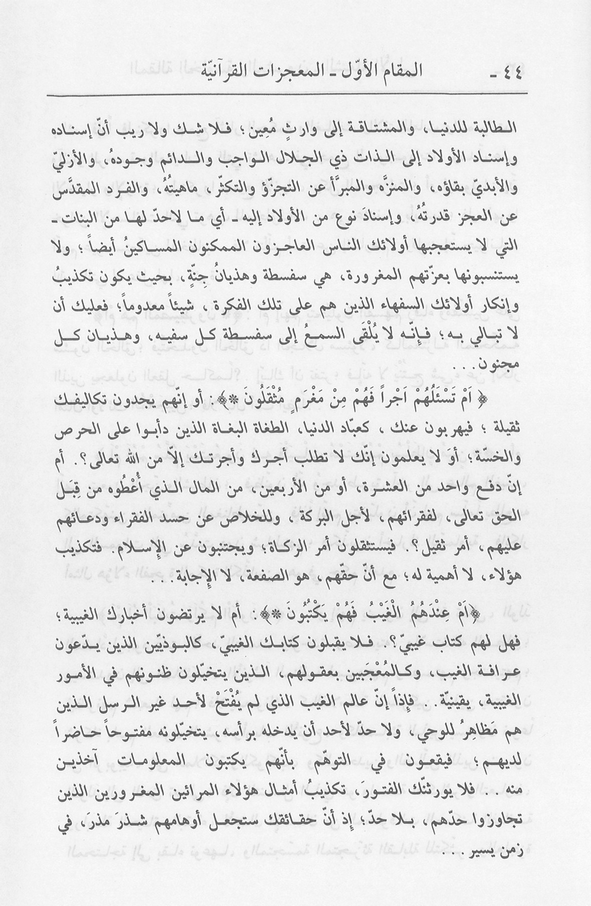 ٤٤ - المقام الأوّل - المعجزات القرآنيّة
الطالبة للدنيا، والمشتاقة إلى وارثٍ مُعِين؛ فلا شك ولا ريب أنّ إسناده
وإسناد الأولاد إلى الذات ذي الجلال الواجب والدائم وجودهُ، والأزليّ
والأبديّ بقاؤه، والمنزَّه والمبرَّأ عن التجزّؤ والتكثّر، ماهيتُهُ، والفرد المقدَّس
عن العجز قدرتُهُ، وإسنادَ نوع من الأولاد إليه - أي ما لاحدّ لها من البنات -
التي لا يستعجبها أولائك الناس العاجزون الممكنون المساكينُ أيضاً؛ ولا
يستنسبونها بعزّتهم المغرورة، هي سفسطة وهذيانُ جِنّةٍ، بحيث يكون تكذيبُ
وإنكار أولائك السفهاء الذين هم على تلك الفكرة، شيئاً معدوماً؛ فعليك أن
لا تبالي به؛ فإنّه لا يُلْقَى السمعُ إلى سفسطة كل سفيه، وهذيان كل
مجنون...
﴿ اَمْ تَسْئَلُهُمْ اَجْراً فَهُمْ مِنْ مَغْرَمٍ مُثْقَلُونَ *﴾: أو إنّهم يجدون تكاليفك
ثقيلة؛ فيهربون عنك، كعبّاد الدنيا، الطغاة البغاة الذين دأبوا على الحرص
والخسّة؛ أوَ لا يعلمون إنّك لا تطلب أجرك وأجرتك إلاّ من الله تعالى؟. أم
إنّ دفع واحد من العشرة، أو من الأربعين، من المال الذي أُعْطُوه من قِبَل
الحق تعالى، لفقرائهم، لأجل البركة، وللخلاص عن حسد الفقراء ودعائهم
عليهم، أمر ثقيل؟. فيستثقلون أمر الزكاة؛ ويجتنبون عن الإسلام. فتكذيب
هؤلاء، لا أهمية له؛ مع أنّ حقّهم، هو الصفعة، لا الإجابة...
﴿اَمْ عِنْدَهُمُ الْغَيْبُ فَهُمْ يَكْتُبُونَ *﴾: أم لا يرتضون أخبارك الغيبية؛
فهل لهم كتاب غيبيّ؟. فلا يقبلون كتابك الغيبيّ، كالبوذيّين الذين يدّعون
عرافة الغيب، وكالمُعْجَبين بعقولهم، الذين يتخيّلون ظنونهم في الأمور
الغيبية، يقينيّة.. فإذاً إنّ عالم الغيب الذي لم يُفْتَحْ لأحد غير الرسل الذين
هم مَظاهِرُ للوحي، ولا حدّ لأحد أن يدخله برأسه، يتخيّلونه مفتوحاً حاضراً
لديهم؛ فيقعون في التوهّم بأنّهم يكتبون المعلومات آخذين
منه.. فلا يورثنّك الفتورَ، تكذيبُ أمثال هؤلاء المرائين المغرورين الذين
تجاوزوا حدّهم، بلا حدّ؛ إذ أنّ حقائقك ستجعل أوهامهم شذرَ مذرَ، في
زمن يسير...